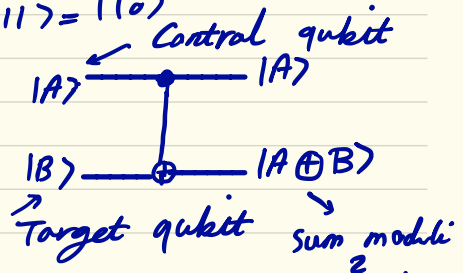 |1⟩ = |10⟩
Control qubit
|A⟩ |A⟩
|B⟩ |A ⊕ B⟩
Target qubit sum moduli
2